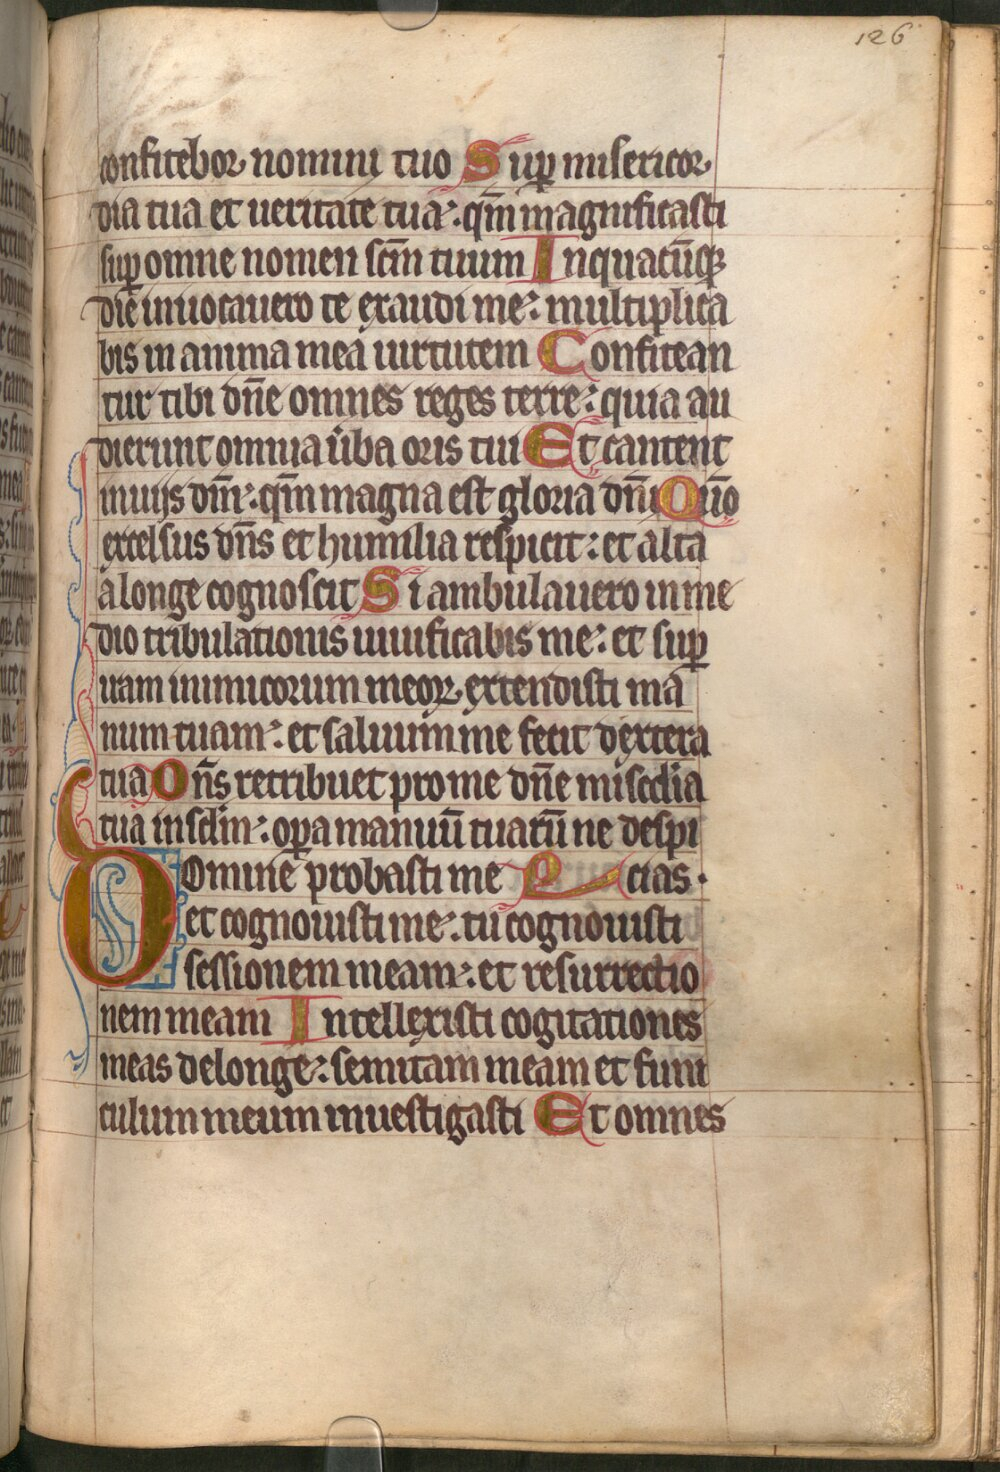 126
confitebor nomini tuo Sup misericor
dia tua et ueritate tua: qm̄ magnificasti
sup omne nomen scm̄ tuum In quacūqȝ
die inuocauero te exaudi me: multiplica
bis in anima mea uirtutem Confitean
tur tibi dn̄e omnes reges terre: quia au
dierunt omnia ūba oris tui Et cantent
in uijs dn̄i: qm̄ magna est gloria dn̄i Qm̄
excelsus dn̄s et humilia respicit: et alta
a longe cognoscit Si ambulauero in me
dio tribulationis uiuificabis me: et sup
iram inimicorum meoꝝ extendisti ma
num tuam: et saluum me fecit dextera
tua Dn̄s retribuet pro me dn̄e mis̄c̄dia
tua in sc̄lm: opa manuū tuarū ne despi
Domine probasti me cias.
et cognouisti me: tu cognouisti
sessionem meam: et resurrectio
nem meam Intellexisti cogitationes
meas de longe: semitam meam et funi
culum meum inuestigasti Et omnes